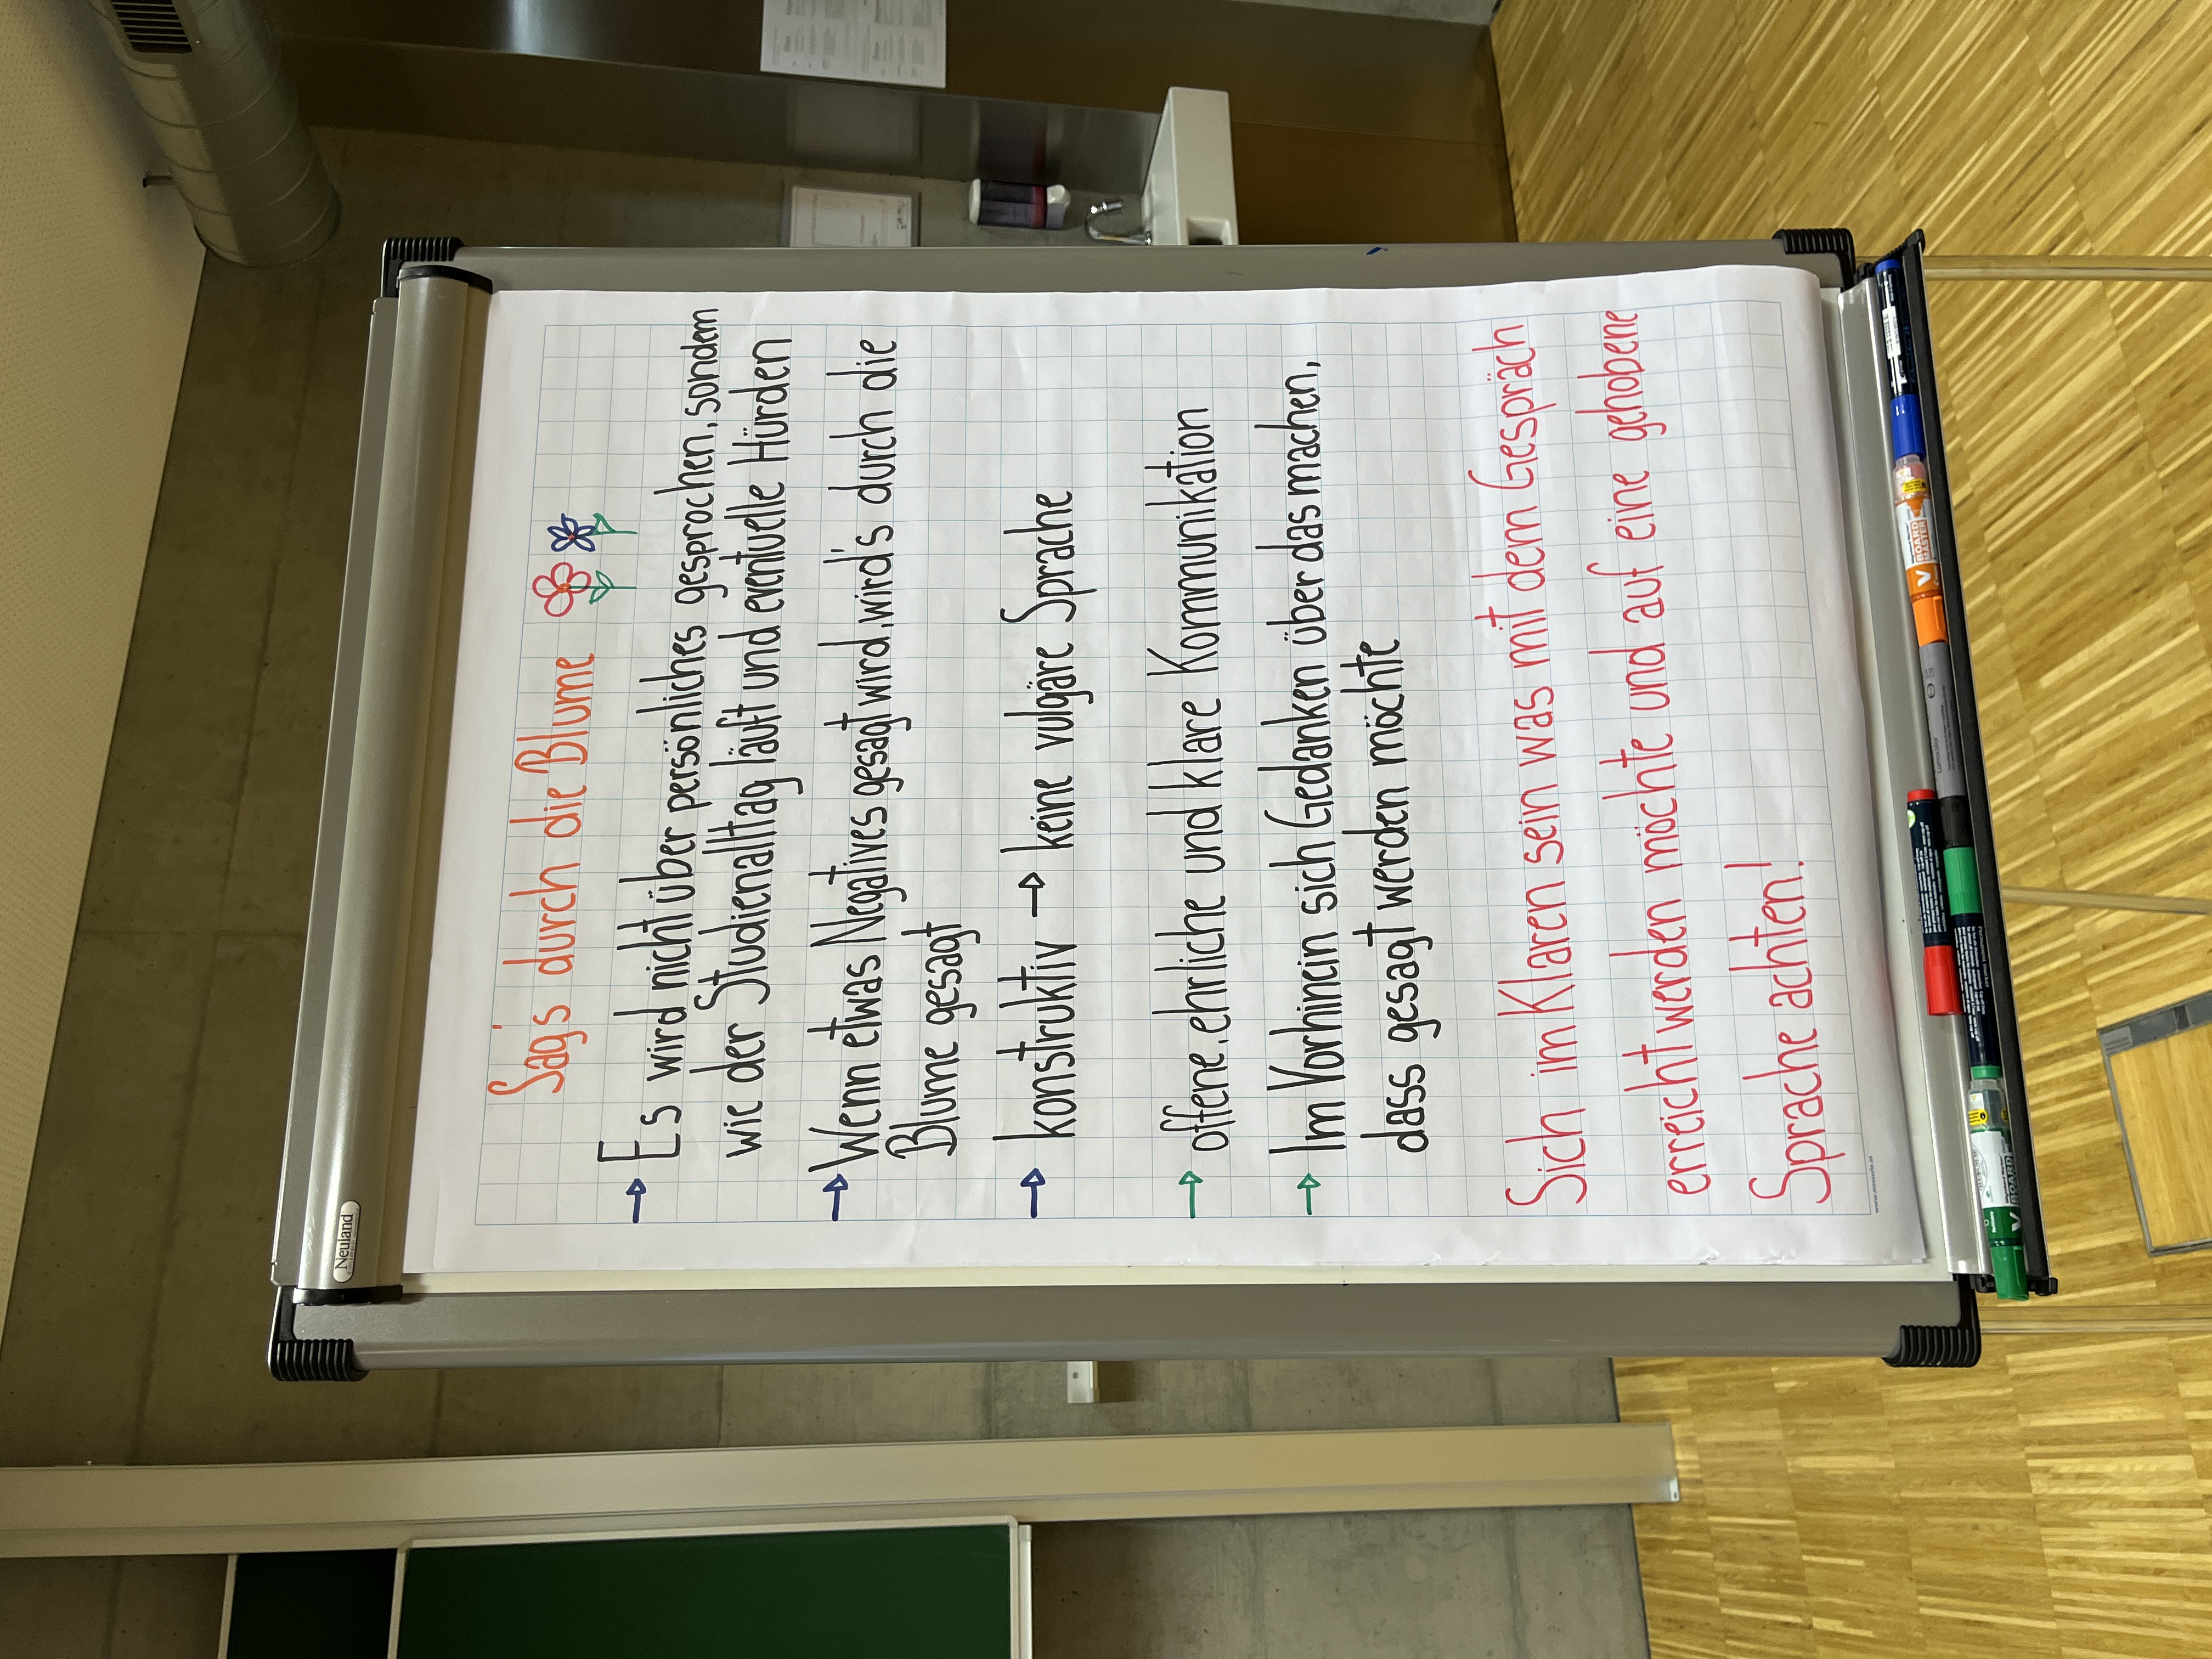 Neuland
Sag's durch die Blume
→ Es wird nicht über persönliches gesprochen, sondern
wie der Studienalltag läuft und eventuelle Hürden
→ Wenn etwas Negatives gesagt wird, wird's durch die
Blume gesagt
→ konstruktiv → keine vulgäre Sprache
→ offene, ehrliche und klare Kommunikation
→ Im Vorhinein sich Gedanken über das machen,
dass gesagt werden möchte
Sich im Klaren sein was mit dem Gespräch
erreicht werden möchte und auf eine gehobene
Sprache achten!
BOARD
MASTER
V BOARD